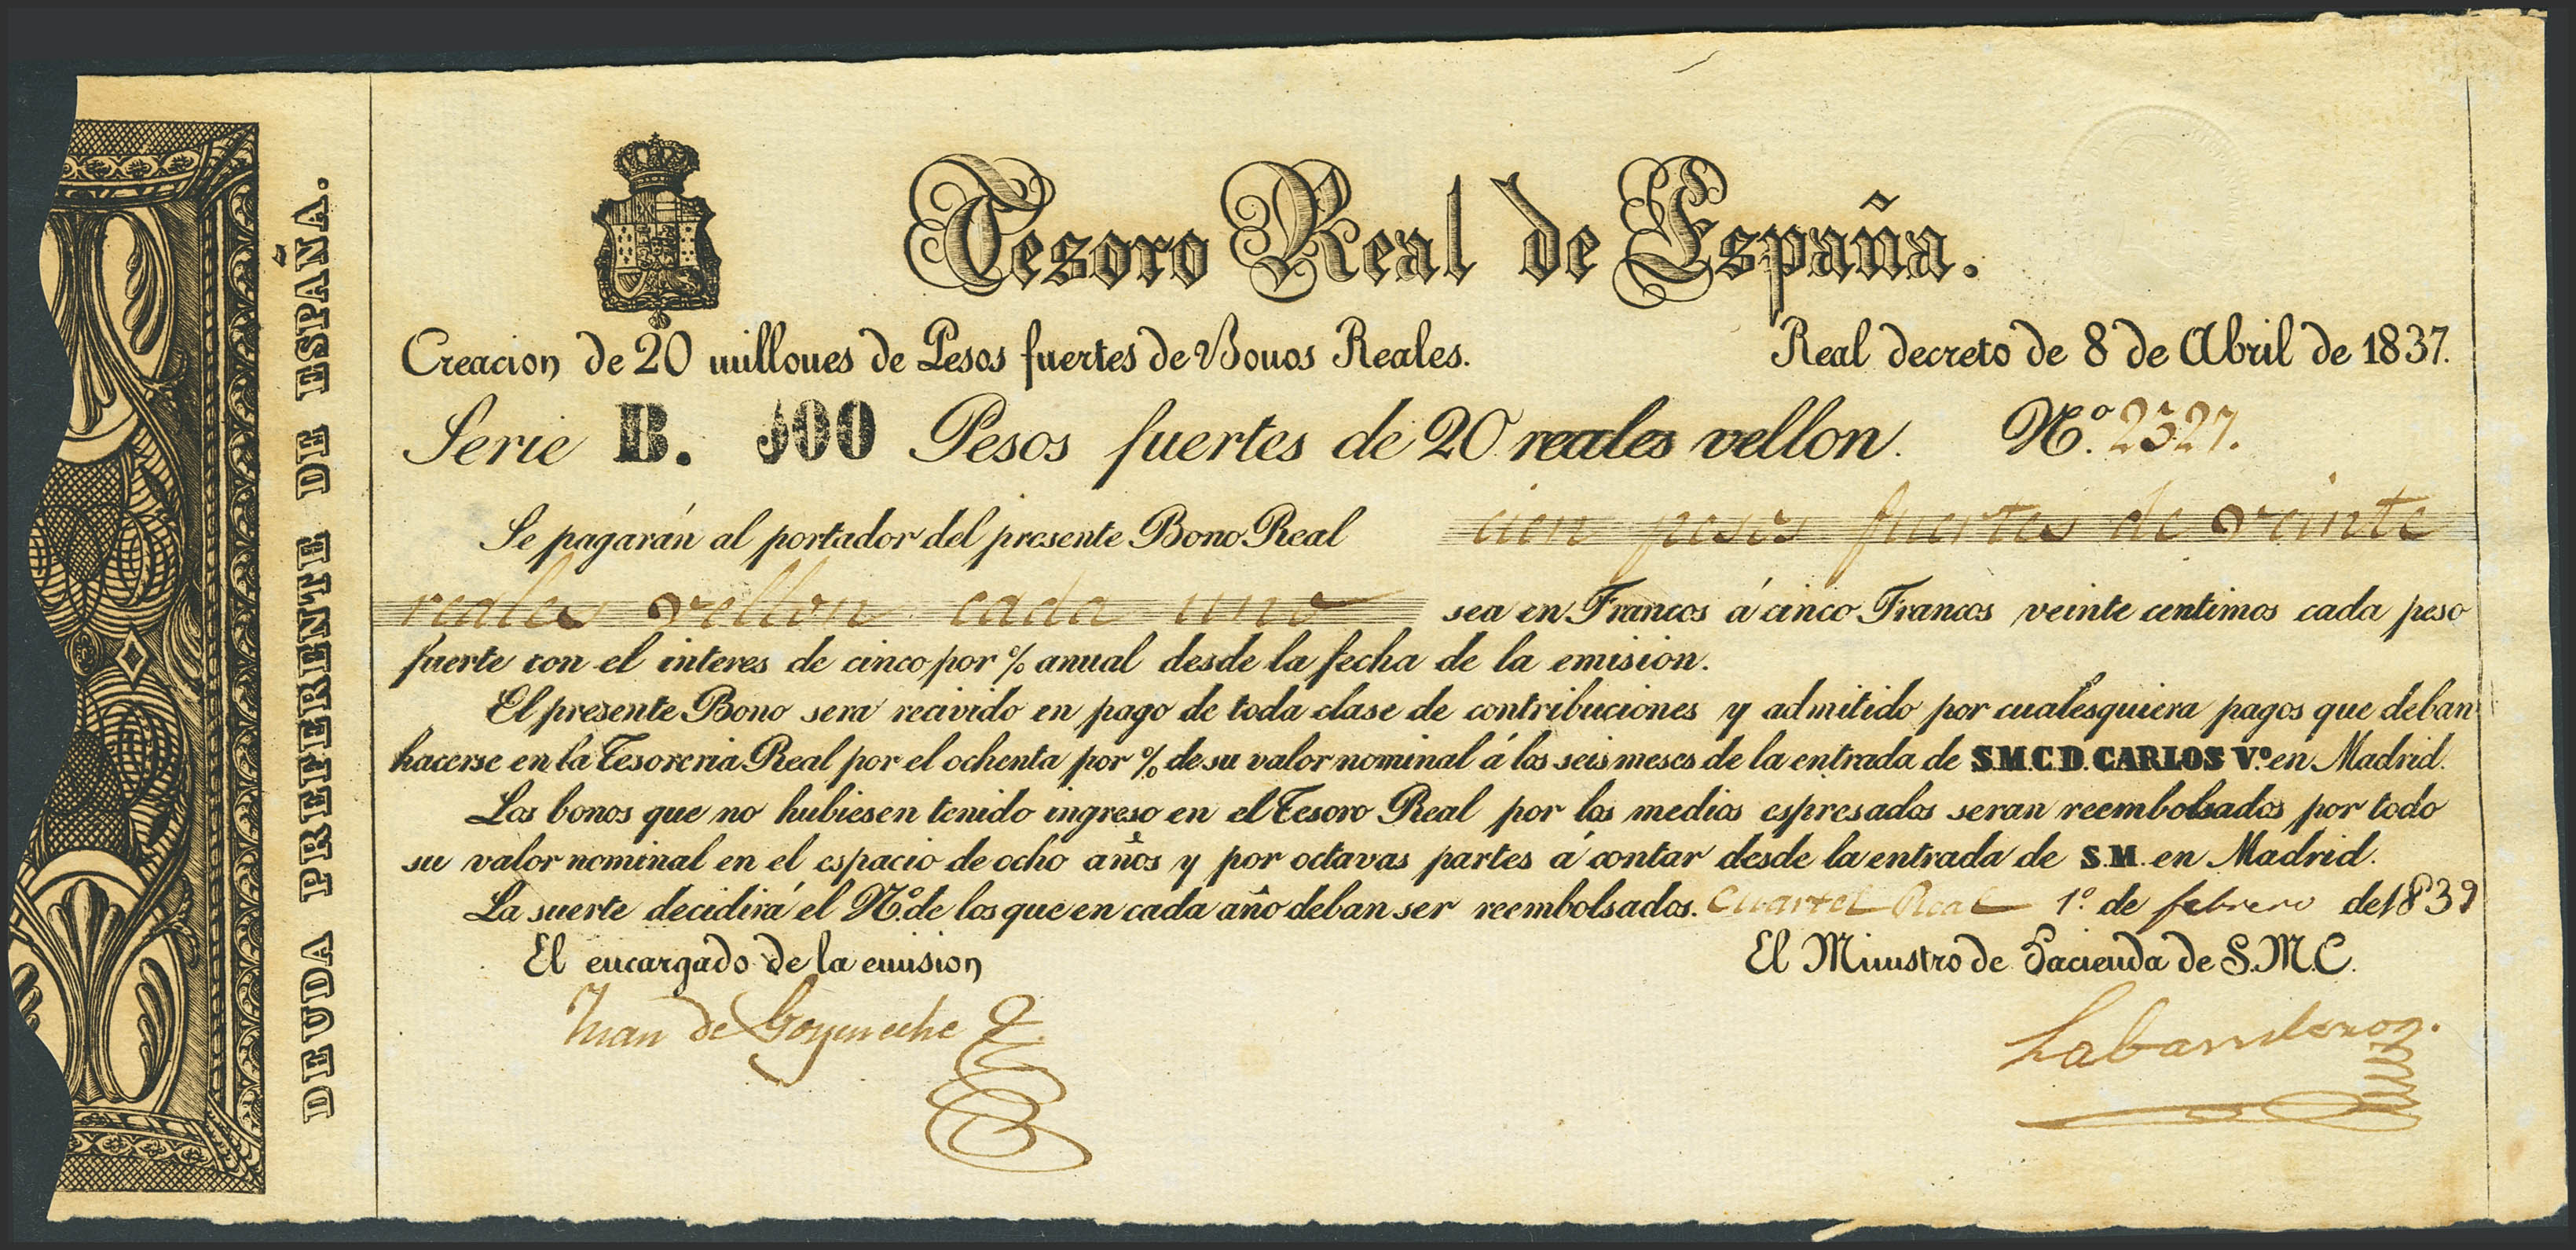 DEUDA PREFERENTE DE ESPAÑA.
Tesoro Real de España.
Creacion de 20 millones de Pesos fuertes de Bonos Reales. Real decreto de 8 de Abril de 1837.
Serie B. 100 Pesos fuertes de 20 reales vellon. Nº. 2327.
Se pagarán al portador del presente Bono Real cien pesos fuertes de veinte
reales vellon cada uno sea en Francos á cinco Francos veinte centimos cada peso
fuerte con el interes de cinco por % anual desde la fecha de la emision.
El presente Bono sera recivido en pago de toda clase de contribuciones y admitido por cualesquiera pagos que deban
hacerse en la Tesoreria Real por el ochenta por % de su valor nominal á los seis meses de la entrada de S.M.C.D. CARLOS Vº. en Madrid.
Los bonos que no hubiesen tenido ingreso en el Tesoro Real por los medios espresados seran reembolsados por todo
su valor nominal en el espacio de ocho años y por octavas partes á contar desde la entrada de S.M. en Madrid.
La suerte decidirá el Nº. de los que en cada año deban ser reembolsados. Cuartel Real 1º de febrero de 1839
El encargado de la emision El Ministro de Hacienda de S.M.C.
Juan de Goyeneche Labanderoz.